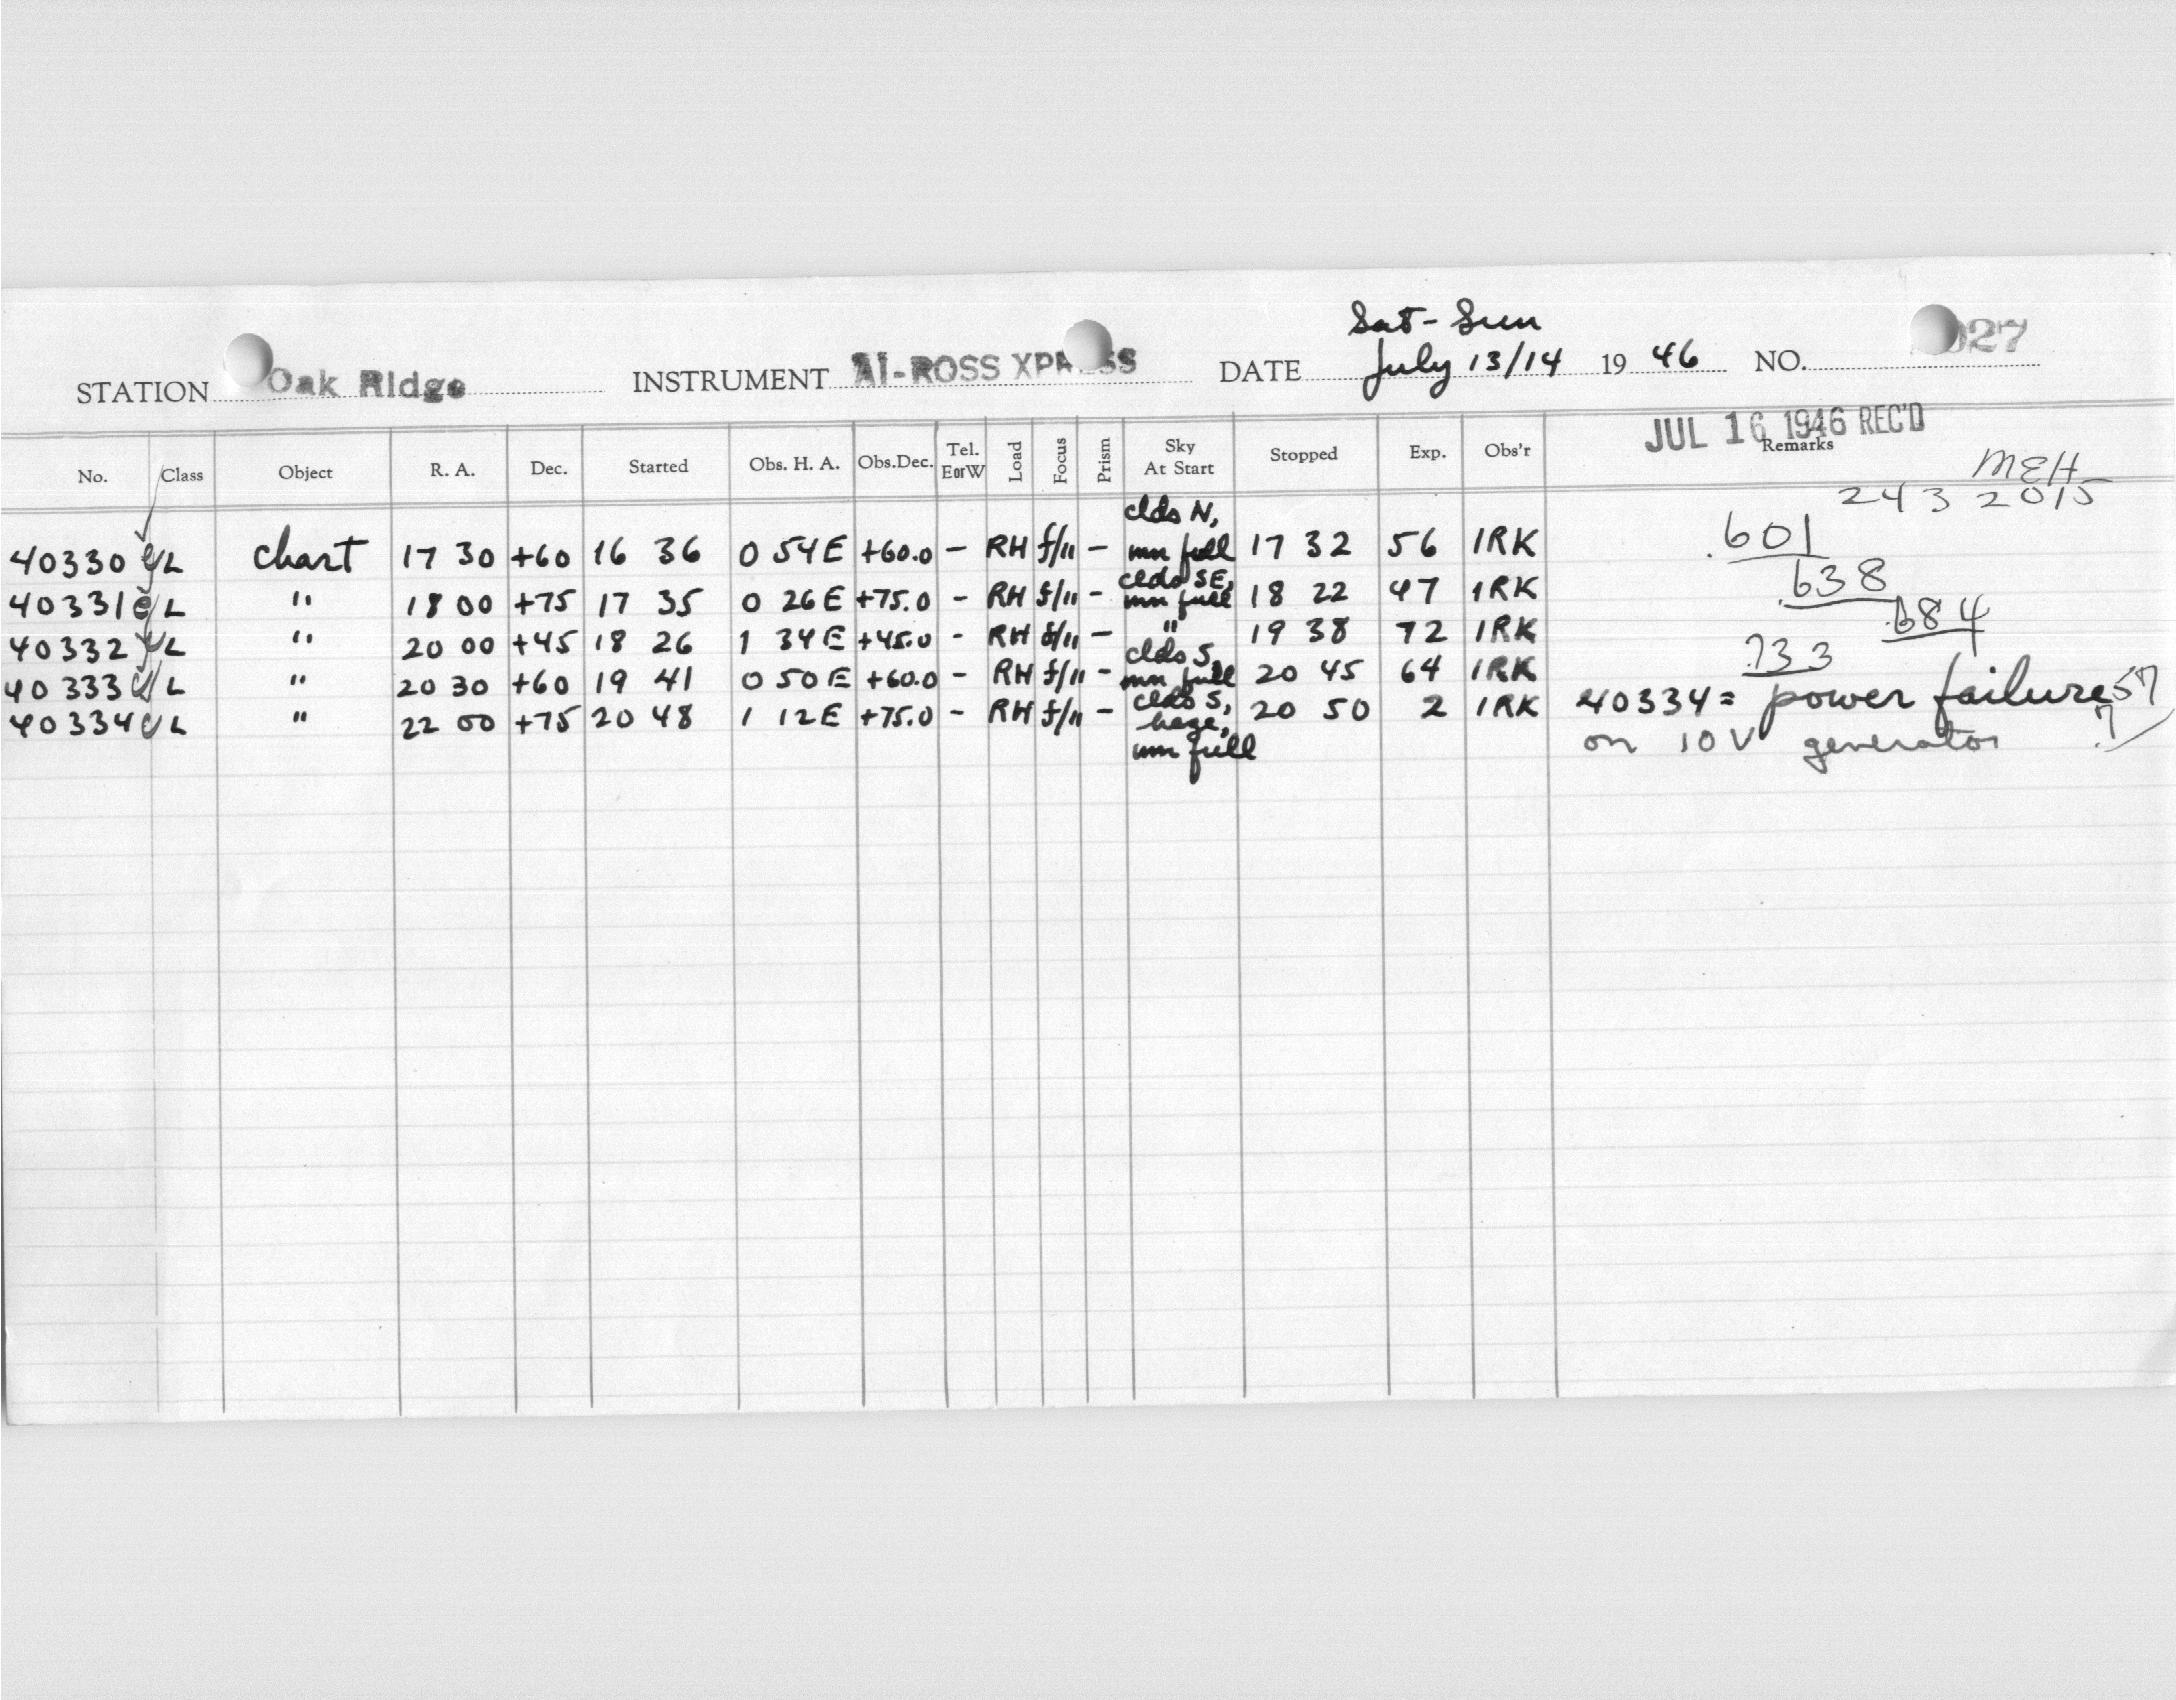 Sat-Sun
STATION Oak Ridge INSTRUMENT AI-ROSS XPR SS DATE July 13/14 19 46 NO. 027
JUL 16 1946 REC'D
No. Class Object R. A. Dec. Started Obs. H. A. Obs.Dec. Tel. EorW Load Focus Prism Sky At Start Stopped Exp. Obs'r Remarks
MEH
243 2015
40330 L Chart 17 30 +60 16 36 0 54E +60.0 - RH f/11 - clds N, mn full 17 32 56 IRK .601
40331 L " 18 00 +75 17 35 0 26E +75.0 - RH f/11 - clds SE, mn full 18 22 47 IRK .638
40332 L " 20 00 +45 18 26 1 34E +45.0 - RH f/11 - " 19 38 72 IRK .684
40333 L " 20 30 +60 19 41 0 50E +60.0 - RH f/11 - clds S, mn full 20 45 64 IRK .733
40334 L " 22 00 +75 20 48 1 12E +75.0 - RH f/11 - clds S, haze, mn full 20 50 2 IRK 40334 = power failure
on 10V generator